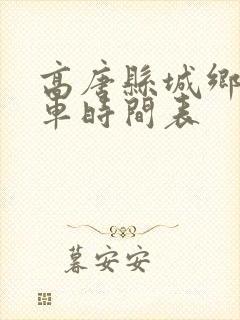 高唐縣城鄉
車時間表
暮安安